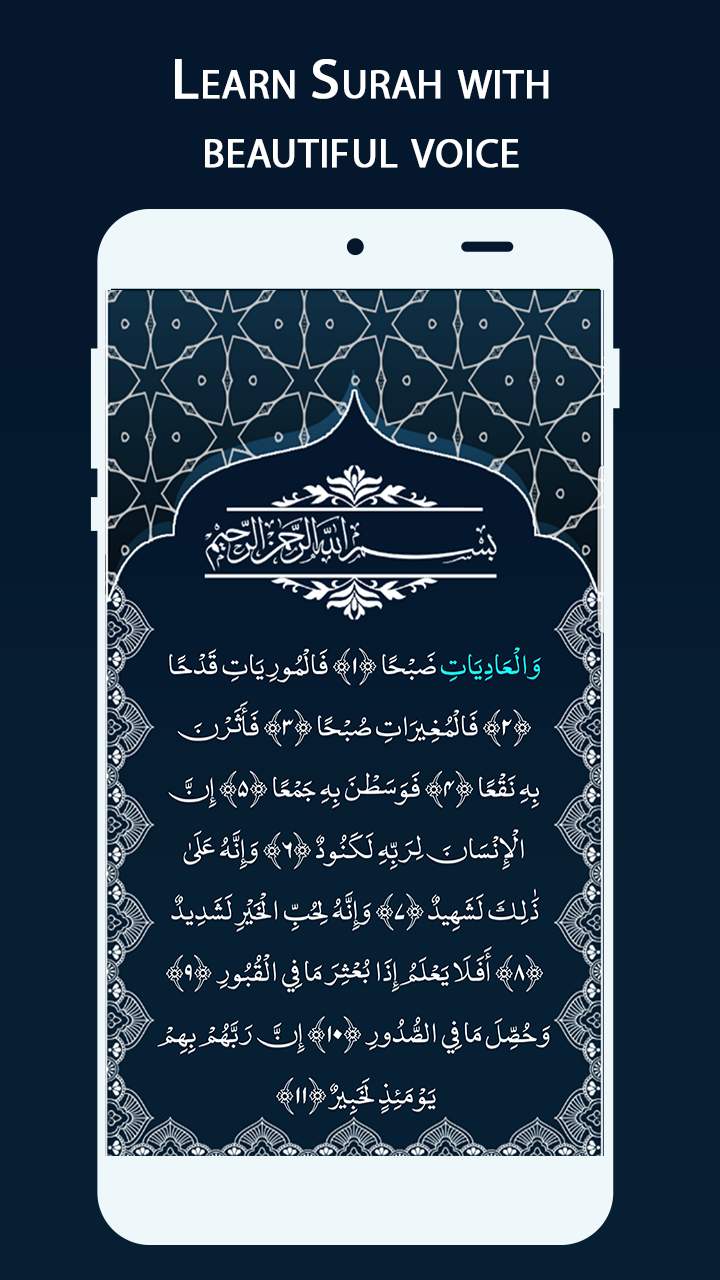 LEARN SURAH WITH
BEAUTIFUL VOICE
بسم الله الرحمن الرحيم
وَالْعَادِيَاتِ ضَبْحًا ﴿١﴾ فَالْمُورِيَاتِ قَدْحًا
﴿٢﴾ فَالْمُغِيرَاتِ صُبْحًا ﴿٣﴾ فَأَثَرْنَ
بِهِ نَقْعًا ﴿۴﴾ فَوَسَطْنَ بِهِ جَمْعًا ﴿۵﴾ إِنَّ
الْإِنْسَانَ لِرَبِّهِ لَكَنُودٌ ﴿٦﴾ وَإِنَّهُ عَلَىٰ
ذَٰلِكَ لَشَهِيدٌ ﴿٧﴾ وَإِنَّهُ لِحُبِّ الْخَيْرِ لَشَدِيدٌ
﴿٨﴾ أَفَلَا يَعْلَمُ إِذَا بُعْثِرَ مَا فِي الْقُبُورِ ﴿٩﴾
وَحُصِّلَ مَا فِي الصُّدُورِ ﴿١٠﴾ إِنَّ رَبَّهُمْ بِهِمْ
يَوْمَئِذٍ لَخَبِيرٌ ﴿١١﴾